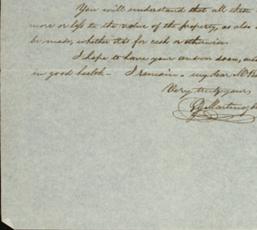 You will understand that all these
more or less to the value of the property, as also
be made, whether it is for cash or otherwise
I hope to have your answer soon, and
in good health - I remain, my dear Mr
Very truly yours
Martinez